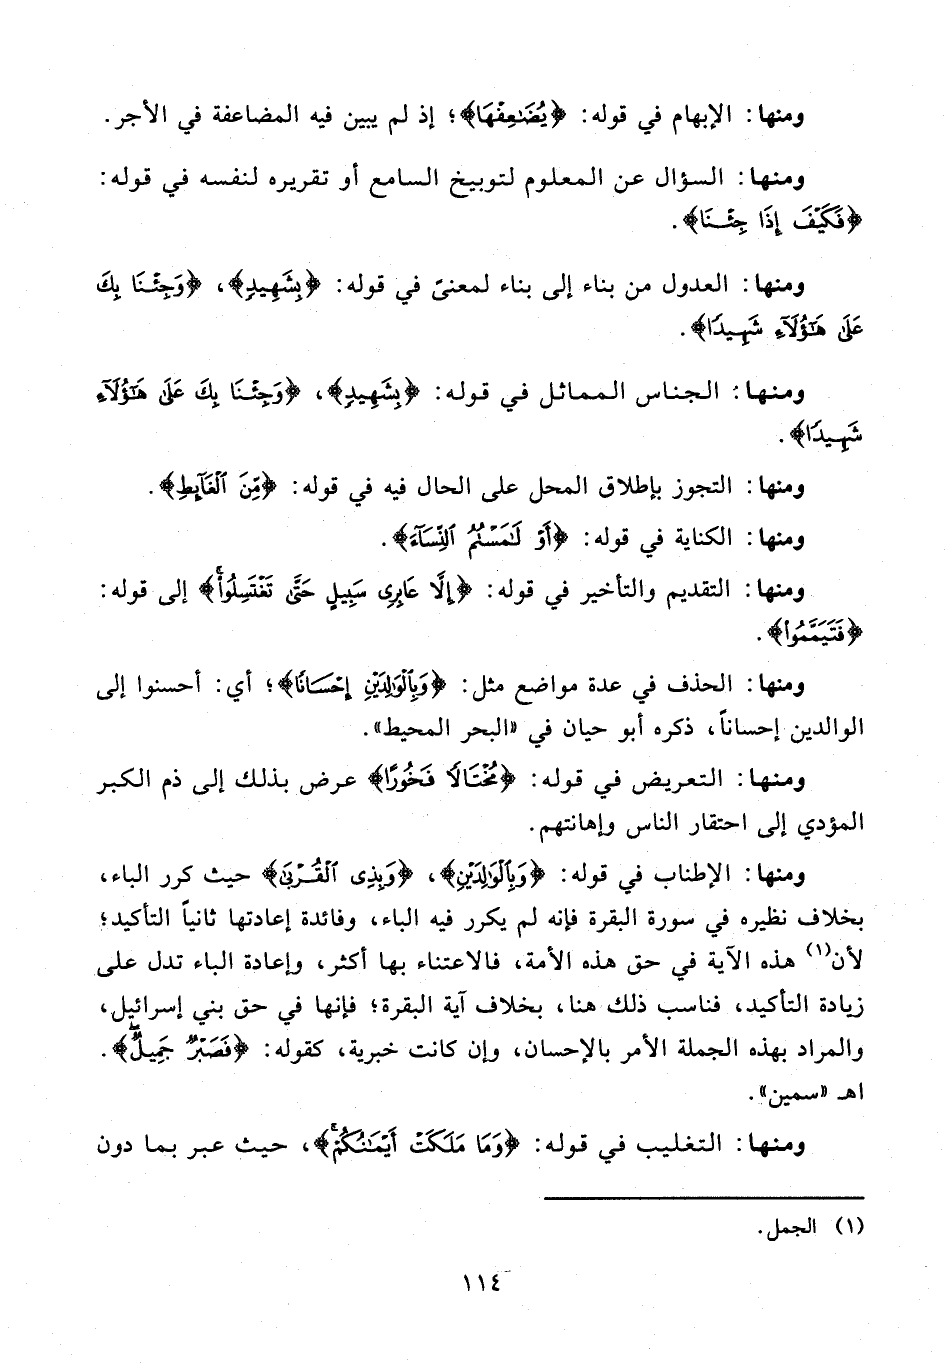 ومنها: الإبهام في قوله: ﴿يُضَٰعِفْهَا﴾؛ إذ لم يبين فيه المضاعفة في الأجر.
ومنها: السؤال عن المعلوم لتوبيخ السامع أو تقريره لنفسه في قوله:
﴿فَكَيْفَ إِذَا جِئْنَا﴾.
ومنها: العدول من بناء إلى بناء لمعنىً في قوله: ﴿بِشَهِيدٍ﴾، ﴿وَجِئْنَا بِكَ
عَلَىٰ هَٰٓؤُلَآءِ شَهِيدًا﴾.
ومنها: الجناس المماثل في قوله: ﴿بِشَهِيدٍ﴾، ﴿وَجِئْنَا بِكَ عَلَىٰ هَٰٓؤُلَآءِ
شَهِيدًا﴾.
ومنها: التجوز بإطلاق المحل على الحال فيه في قوله: ﴿مِّنَ ٱلْغَآئِطِ﴾.
ومنها: الكناية في قوله: ﴿أَوْ لَٰمَسْتُمُ ٱلنِّسَآءَ﴾.
ومنها: التقديم والتأخير في قوله: ﴿إِلَّا عَابِرِى سَبِيلٍ حَتَّىٰ تَغْتَسِلُوا۟ۚ﴾ إلى قوله:
﴿فَتَيَمَّمُوا۟﴾.
ومنها: الحذف في عدة مواضع مثل: ﴿وَبِٱلْوَٰلِدَيْنِ إِحْسَانًا﴾؛ أي: أحسنوا إلى
الوالدين إحساناً، ذكره أبو حيان في «البحر المحيط».
ومنها: التعريض في قوله: ﴿مُخْتَالًا فَخُورًا﴾ عرض بذلك إلى ذم الكبر
المؤدي إلى احتقار الناس وإهانتهم.
ومنها: الإطناب في قوله: ﴿وَبِٱلْوَٰلِدَيْنِ﴾، ﴿وَبِذِى ٱلْقُرْبَىٰ﴾ حيث كرر الباء،
بخلاف نظيره في سورة البقرة فإنه لم يكرر فيه الباء، وفائدة إعادتها ثانياً التأكيد؛
لأن(١) هذه الآية في حق هذه الأمة، فالاعتناء بها أكثر، وإعادة الباء تدل على
زيادة التأكيد، فناسب ذلك هنا، بخلاف آية البقرة؛ فإنها في حق بني إسرائيل،
والمراد بهذه الجملة الأمر بالإحسان، وإن كانت خبرية، كقوله: ﴿فَصَبْرٌ جَمِيلٌۖ﴾.
اهـ «سمين».
ومنها: التغليب في قوله: ﴿وَمَا مَلَكَتْ أَيْمَٰنُكُمْۚ﴾، حيث عبر بما دون
(١) الجمل.
١١٤